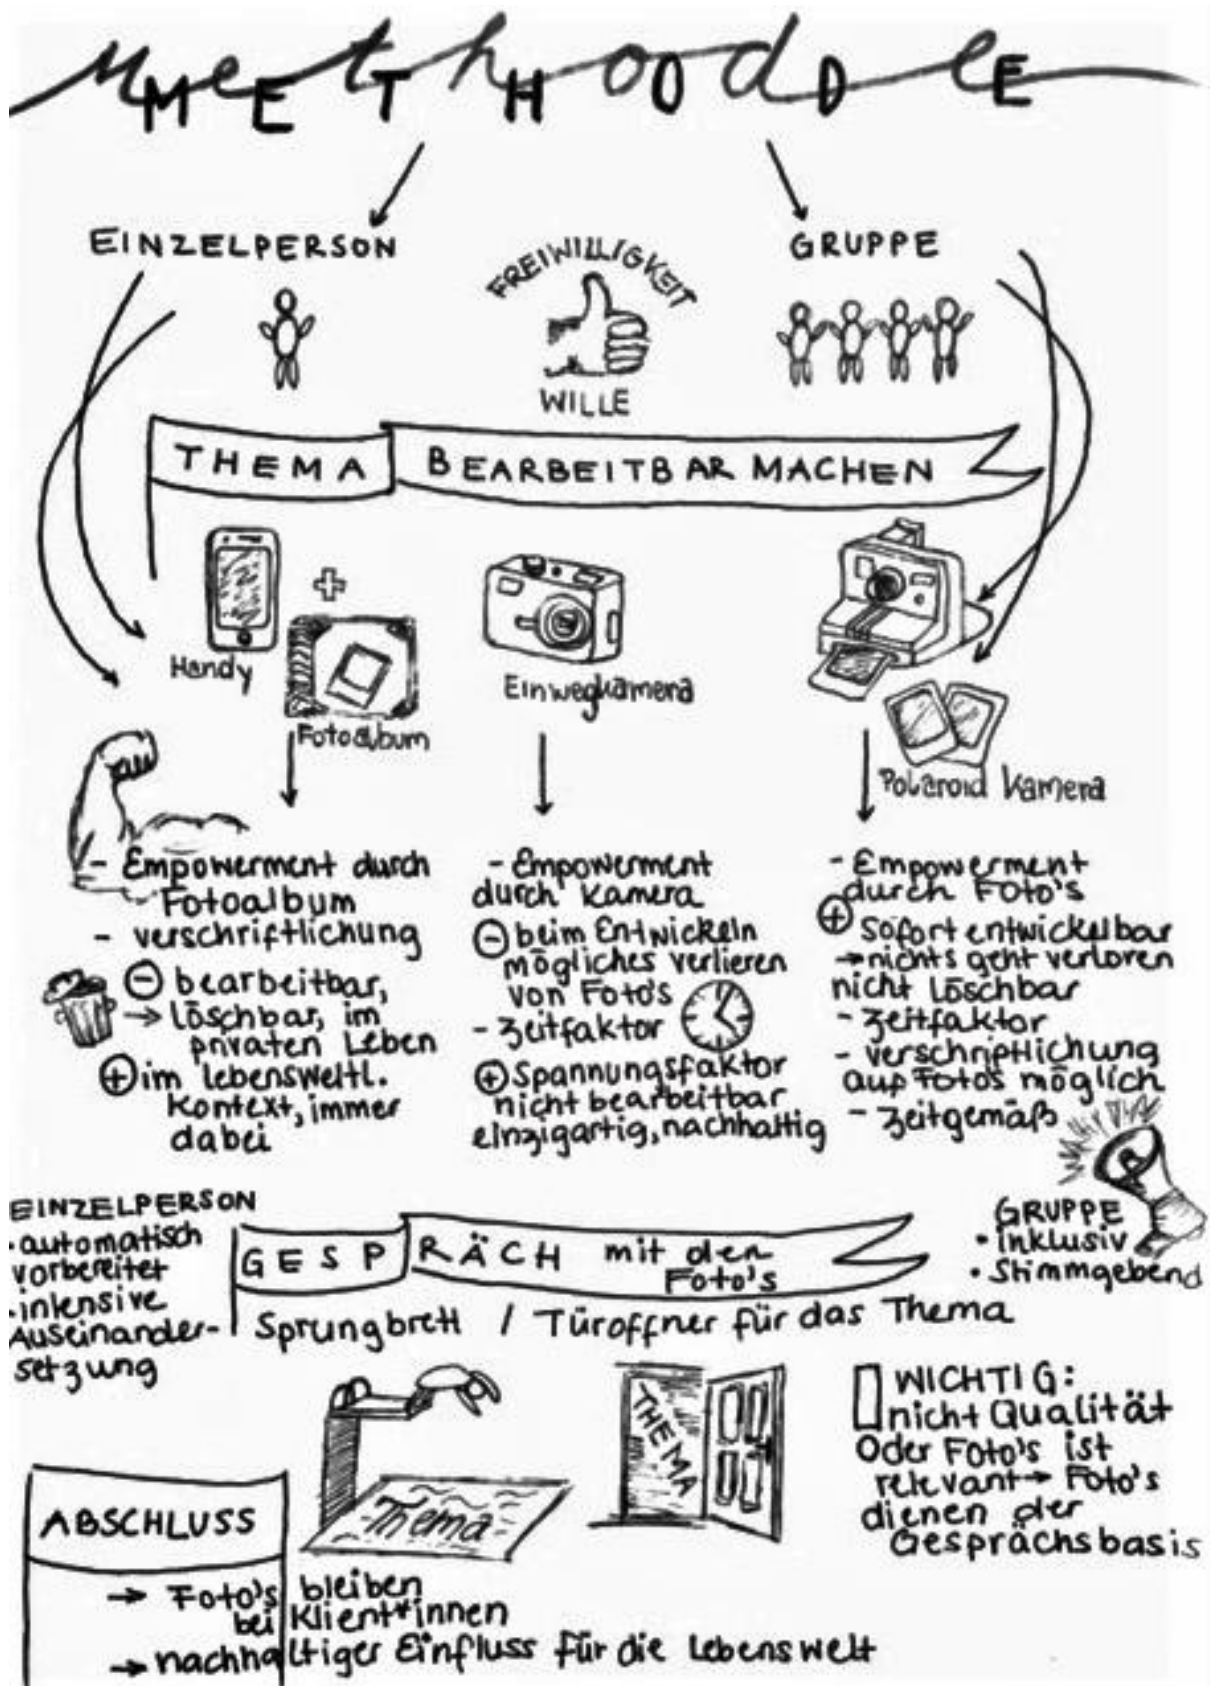 Methode
METHODE
EINZELPERSON
FREIWILLIGKEIT
WILLE
GRUPPE
THEMA BEARBEITBAR MACHEN
Handy
+
Fotoalbum
Einwegkamera
Polaroid Kamera
- Empowerment durch
Fotoalbum
- verschriftlichung
⊖ bearbeitbar,
→ löschbar, im
privaten Leben
⊕ im lebensweltl.
Kontext, immer
dabei
- Empowerment
durch Kamera
⊖ beim Entwickeln
mögliches verlieren
von Foto's
- Zeitfaktor
⊕ Spannungsfaktor
nicht bearbeitbar
einzigartig, nachhaltig
- Empowerment
durch Foto's
⊕ Sofort entwickelbar
→ nichts geht verloren
nicht Löschbar
- Zeitfaktor
- verschriftlichung
auf Fotos möglich
- Zeitgemäß
EINZELPERSON
• automatisch
vorbereitet
• intensive
Auseinander-
setzung
GESPRÄCH mit den
Foto's
Sprungbrett / Türoffner für das Thema
GRUPPE
• inklusiv
• Stimmgebend
Thema
THEMA
WICHTIG:
nicht Qualität
Oder Foto's ist
relevant → Foto's
dienen der
Gesprächsbasis
ABSCHLUSS
→ Foto's bleiben
bei Klient*innen
→ nachhaltiger Einfluss für die Lebenswelt